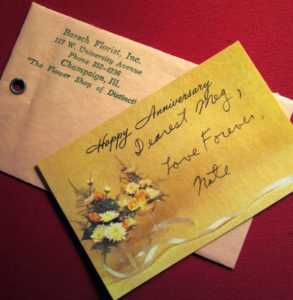 Barach Florist, Inc.
117 W. University Avenue
Phone 352-4236
Champaign, Ill.
"The Flower Shop of Distinct
Happy Anniversary
Dearest Meg,
Love Forever,
Nate